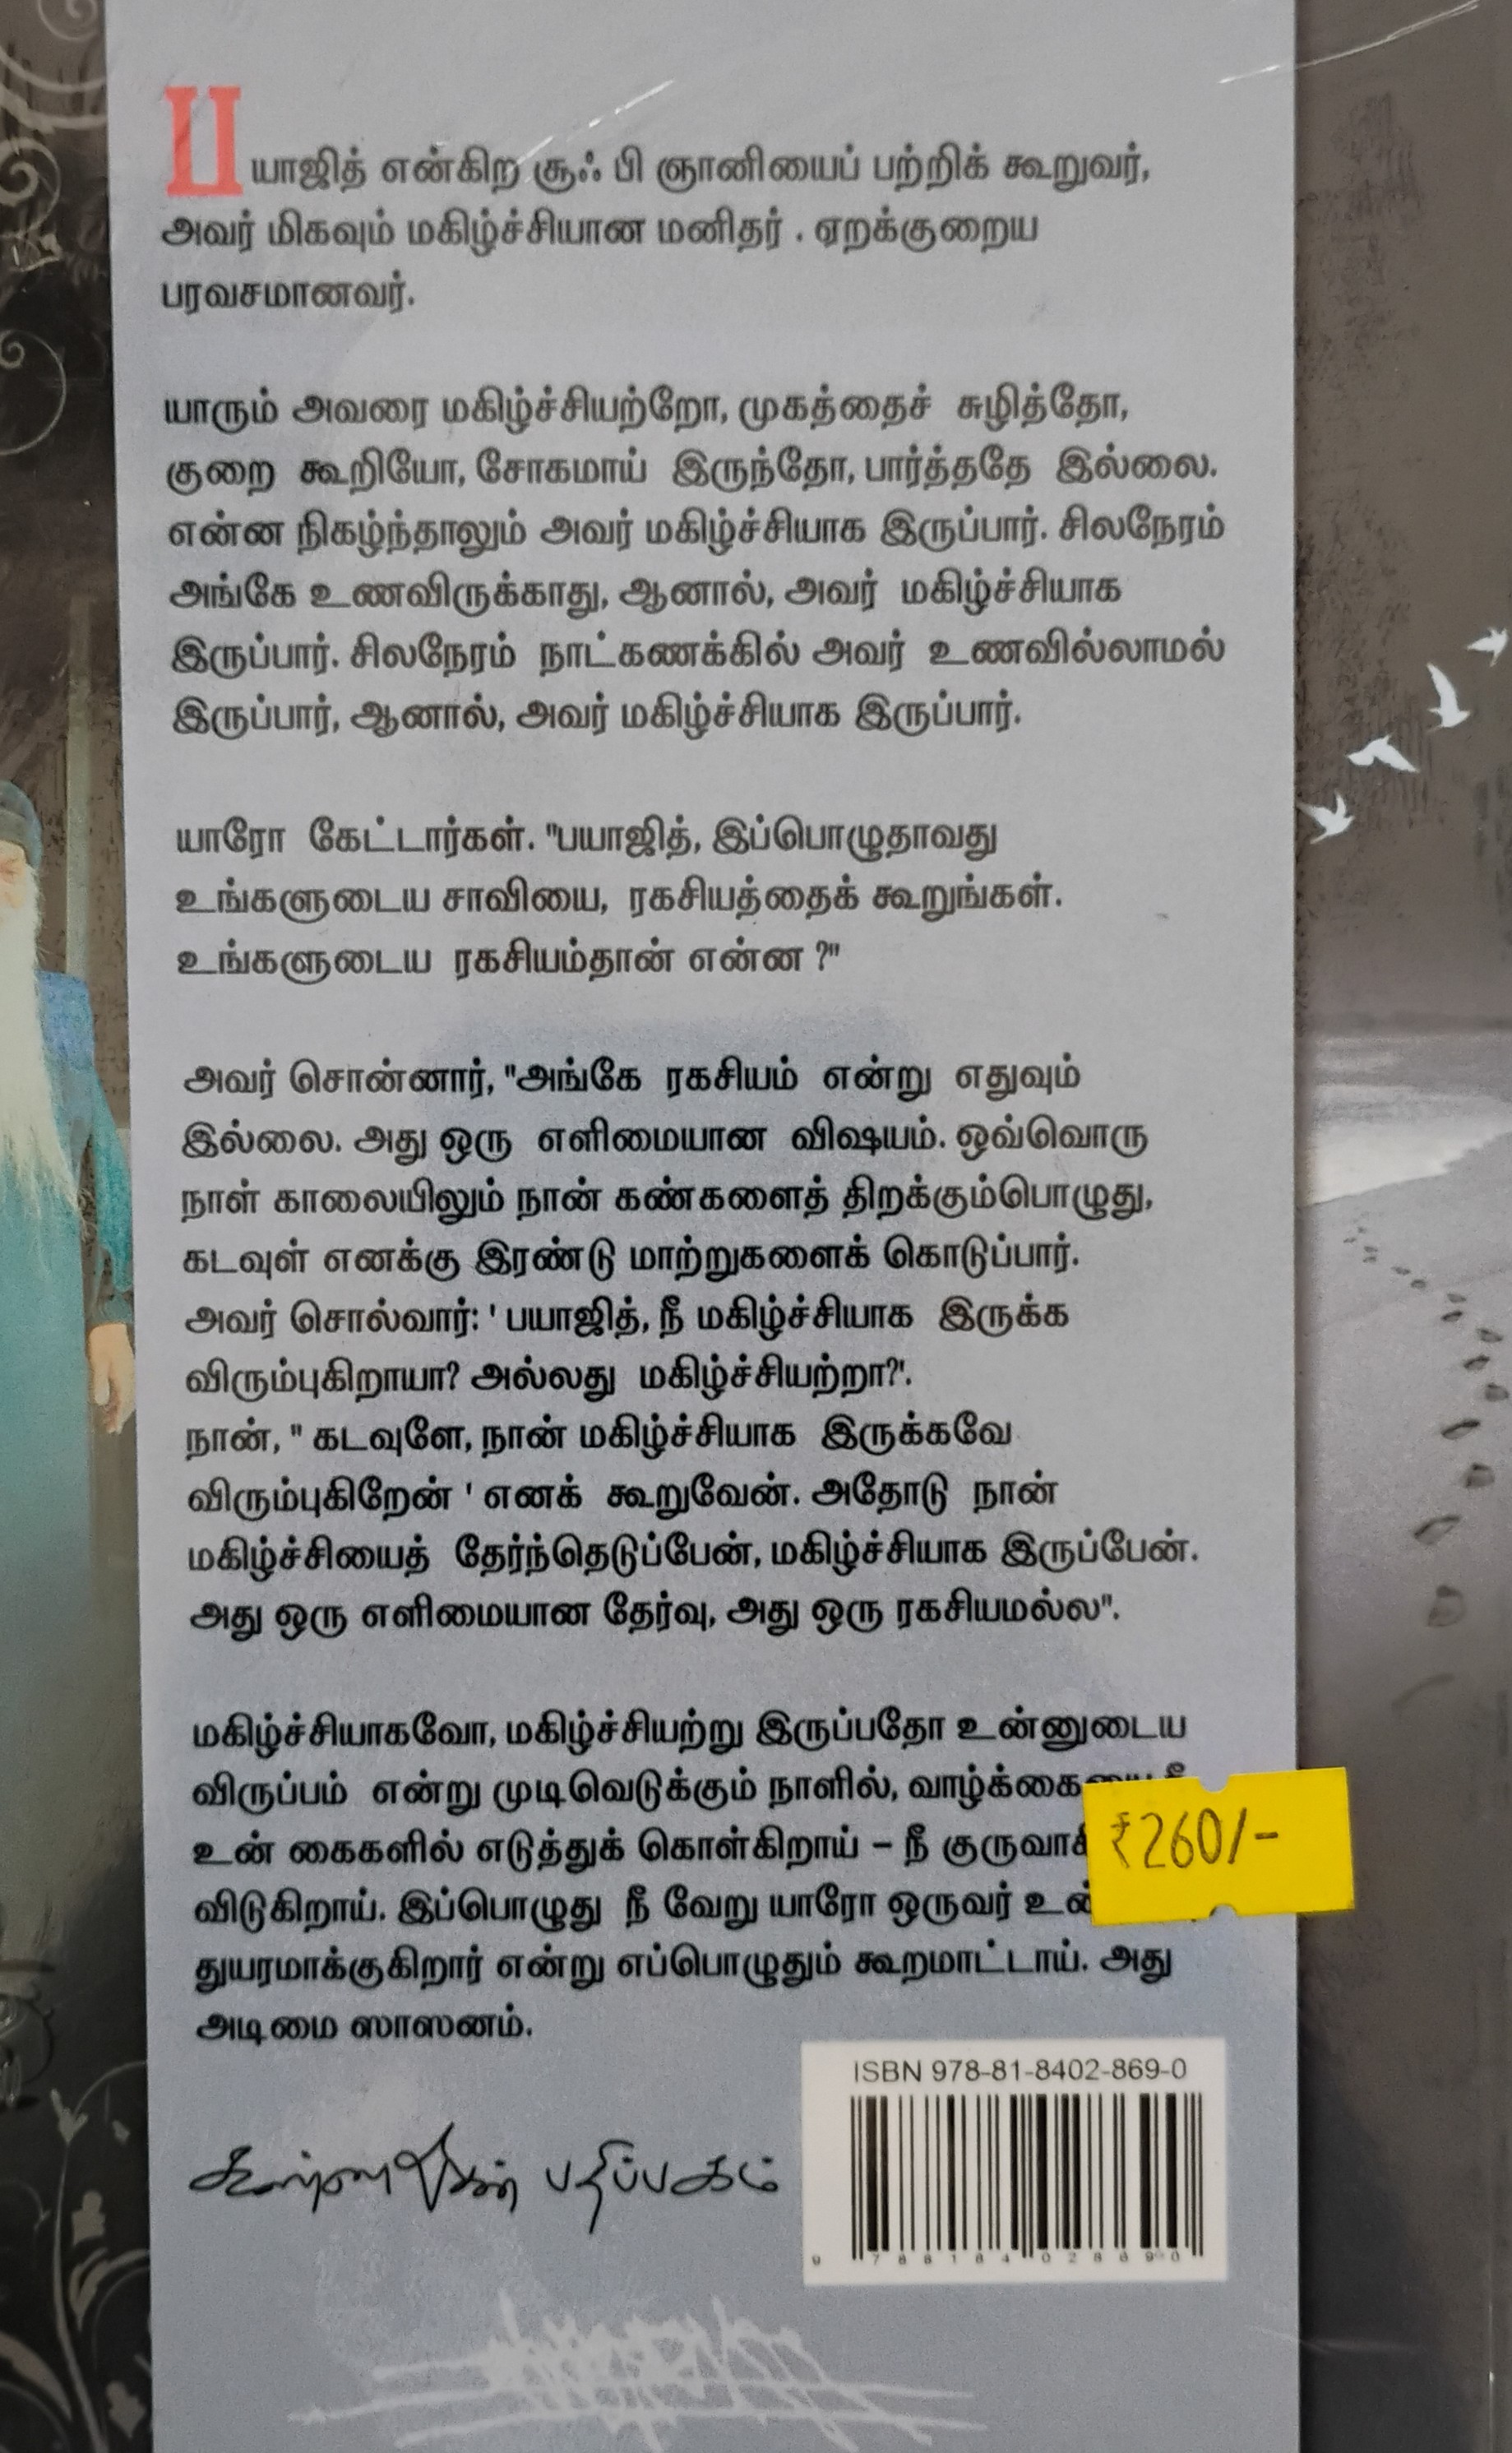 பயாஜித் என்கிற சூஃபி ஞானியைப் பற்றிக் கூறுவர்,
அவர் மிகவும் மகிழ்ச்சியான மனிதர் . ஏறக்குறைய
பரவசமானவர்.
யாரும் அவரை மகிழ்ச்சியற்றோ, முகத்தைச் சுழித்தோ,
குறை கூறியோ, சோகமாய் இருந்தோ, பார்த்ததே இல்லை.
என்ன நிகழ்ந்தாலும் அவர் மகிழ்ச்சியாக இருப்பார். சிலநேரம்
அங்கே உணவிருக்காது, ஆனால், அவர் மகிழ்ச்சியாக
இருப்பார். சிலநேரம் நாட்கணக்கில் அவர் உணவில்லாமல்
இருப்பார், ஆனால், அவர் மகிழ்ச்சியாக இருப்பார்.
யாரோ கேட்டார்கள். "பயாஜித், இப்பொழுதாவது
உங்களுடைய சாவியை, ரகசியத்தைக் கூறுங்கள்.
உங்களுடைய ரகசியம்தான் என்ன ?"
அவர் சொன்னார், "அங்கே ரகசியம் என்று எதுவும்
இல்லை. அது ஒரு எளிமையான விஷயம். ஒவ்வொரு
நாள் காலையிலும் நான் கண்களைத் திறக்கும்பொழுது,
கடவுள் எனக்கு இரண்டு மாற்றுகளைக் கொடுப்பார்.
அவர் சொல்வார்: ' பயாஜித், நீ மகிழ்ச்சியாக இருக்க
விரும்புகிறாயா? அல்லது மகிழ்ச்சியற்றா?'.
நான், " கடவுளே, நான் மகிழ்ச்சியாக இருக்கவே
விரும்புகிறேன் ' எனக் கூறுவேன். அதோடு நான்
மகிழ்ச்சியைத் தேர்ந்தெடுப்பேன், மகிழ்ச்சியாக இருப்பேன்.
அது ஒரு எளிமையான தேர்வு, அது ஒரு ரகசியமல்ல".
மகிழ்ச்சியாகவோ, மகிழ்ச்சியற்று இருப்பதோ உன்னுடைய
விருப்பம் என்று முடிவெடுக்கும் நாளில், வாழ்க்கையை நீ
உன் கைகளில் எடுத்துக் கொள்கிறாய் – நீ
₹260/-
விடுகிறாய். இப்பொழுது நீ வேறு யாரோ ஒருவர்
துயரமாக்குகிறார் என்று எப்பொழுதும் கூறமாட்டாய். அது
அடிமை ஸாஸனம்.
ISBN 978-81-8402-869-0
கண்ணதாசன் பதிப்பகம்
9 788184 028690